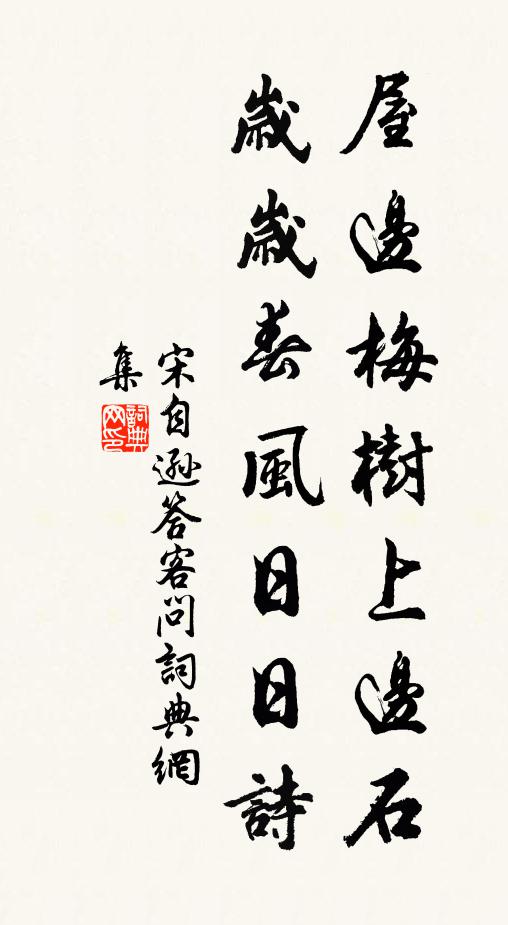 屋邊梅樹上邊石
歲歲春風日日詩
宋自遜答客問詞典網
集
詞典網印